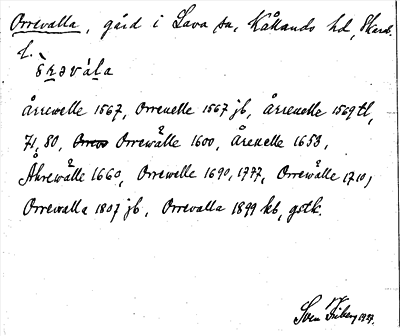 Orrevalla, gård i Lava sn, Kållands hd, Skarab.
l.
òrəvála
Årrewelle 1567, Orreuelle 1567 jb, Årreuelle 1569 tl,
71, 80, Orrewålle 1600, Åreuelle 1658,
Åhrewålle 1660, Orrewelle 1690, 1777, Orrewålle 1710,
Orrewalla 1807 jb, Orrevalla 1899 kb, gstk.
Sven Friberg 1927.